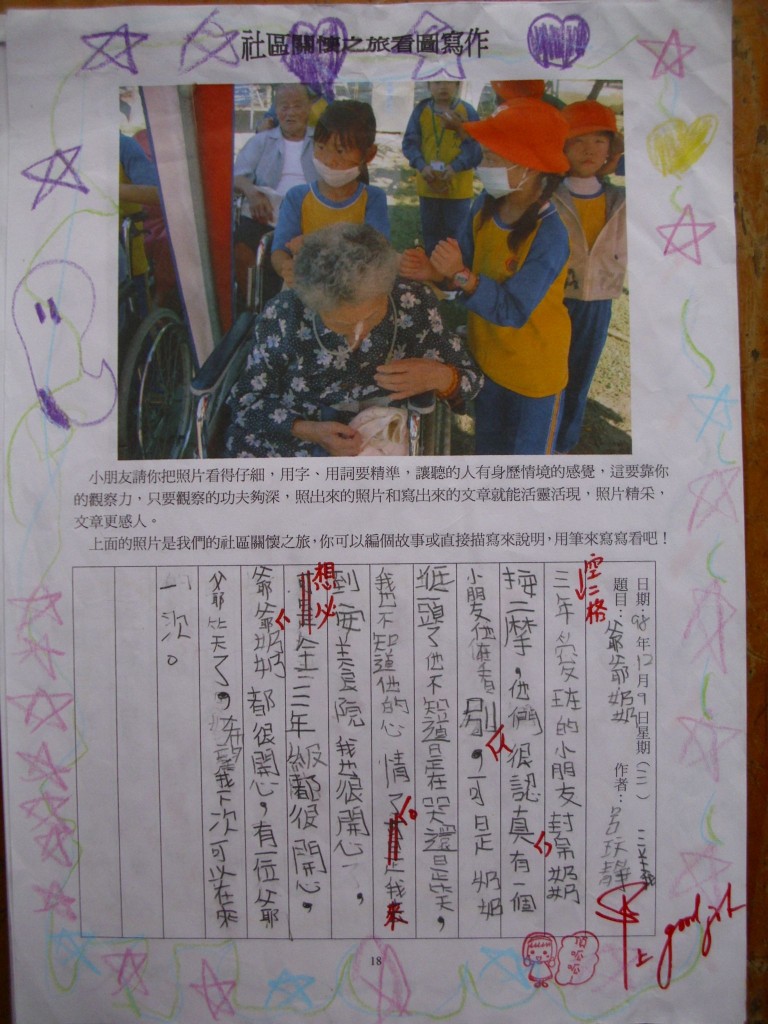 社區關懷之旅看圖寫作
小朋友請你把照片看得仔細，用字、用詞要精準，讓聽的人有身歷情境的感覺，這要靠你
的觀察力，只要觀察的功夫夠深，照出來的照片和寫出來的文章就能活靈活現，照片精采，
文章更感人。
上面的照片是我們的社區關懷之旅，你可以編個故事或直接描寫來說明，用筆來寫寫看吧！
日期：98年12月9日星期(三)
題目：爺爺奶奶 作者：
空二格
三年愛班的小朋友封吊奶奶
按二摩，他們很認真有一個
小朋友他偏看別，可是奶奶
低頭了他不知道是在哭還是笑，
我也不知道他的心情了是我來
到安美食院我也很開心，
想必全三年級都很開心，
爺爺奶奶都很開心，有一位爺
爺笑了，我下次可以在來
一次。
上 good girl
頂呱呱
18